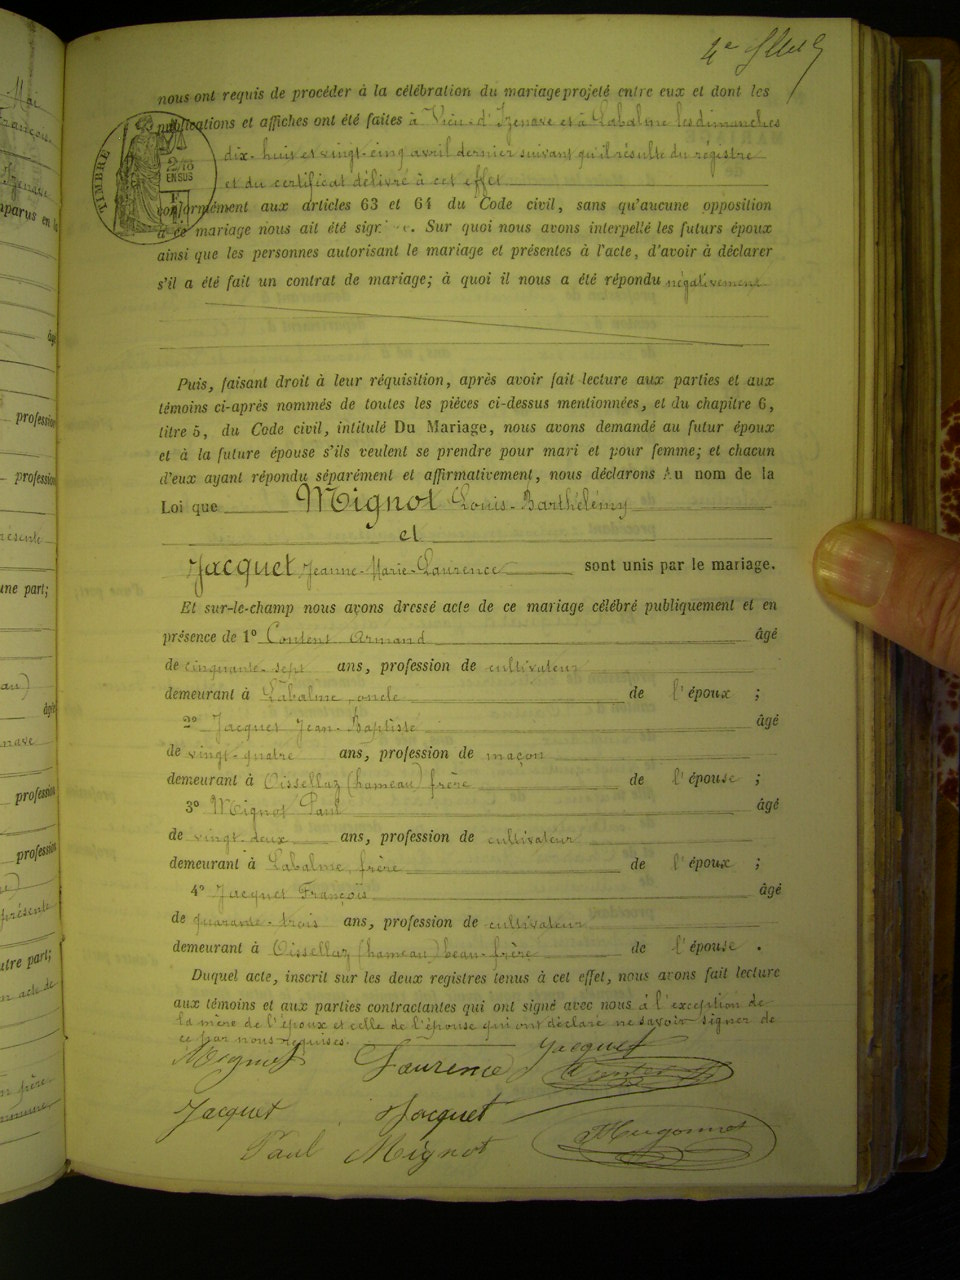 4e
nous ont requis de procéder à la célébration du mariage projeté entre eux et dont les
publications et affiches ont été faites à Vieu-d'Izenave et à Labalme les dimanches
dix-huit et vingt-cinq avril dernier suivant qu'il résulte du régistre
et du certificat délivré à cet effet
conformément aux articles 63 et 64 du Code civil, sans qu'aucune opposition
à ce mariage nous ait été sign e. Sur quoi nous avons interpellé les futurs époux
ainsi que les personnes autorisant le mariage et présentes à l'acte, d'avoir à déclarer
s'il a été fait un contrat de mariage; à quoi il nous a été répondu négativement
TIMBRE
2/10
EN SUS
Puis, faisant droit à leur réquisition, après avoir fait lecture aux parties et aux
témoins ci-après nommés de toutes les pièces ci-dessus mentionnées, et du chapitre 6,
titre 5, du Code civil, intitulé Du Mariage, nous avons demandé au futur époux
et à la future épouse s'ils veulent se prendre pour mari et pour femme; et chacun
d'eux ayant répondu séparément et affirmativement, nous déclarons Au nom de la
Loi que Mignot Louis-Barthélémy
et
Jacquet Jeanne-Marie-Laurence sont unis par le mariage.
Et sur-le-champ nous avons dressé acte de ce mariage célébré publiquement et en
présence de 1° Contens Armand âgé
de cinquante-sept ans, profession de cultivateur
demeurant à Labalme, oncle de l'époux ;
2° Jacquet Jean-Baptiste âgé
de vingt-quatre ans, profession de maçon
demeurant à Oissellaz (hameau) frère de l'épouse ;
3° Mignot Paul âgé
de vingt-deux ans, profession de cultivateur
demeurant à Labalme, frère de l'époux ;
4° Jacquet François âgé
de quarante-trois ans, profession de cultivateur
demeurant à Oissellaz (hameau) beau-frère de l'épouse .
Duquel acte, inscrit sur les deux registres tenus à cet effet, nous avons fait lecture
aux témoins et aux parties contractantes qui ont signé avec nous à l'exception de
la mère de l'époux et celle de l'épouse qui ont déclaré ne savoir signer de
ce par nous requises.
Mignot Laurence Jacquet
Jacquet Jacquet
Paul Mignot Hugonnet